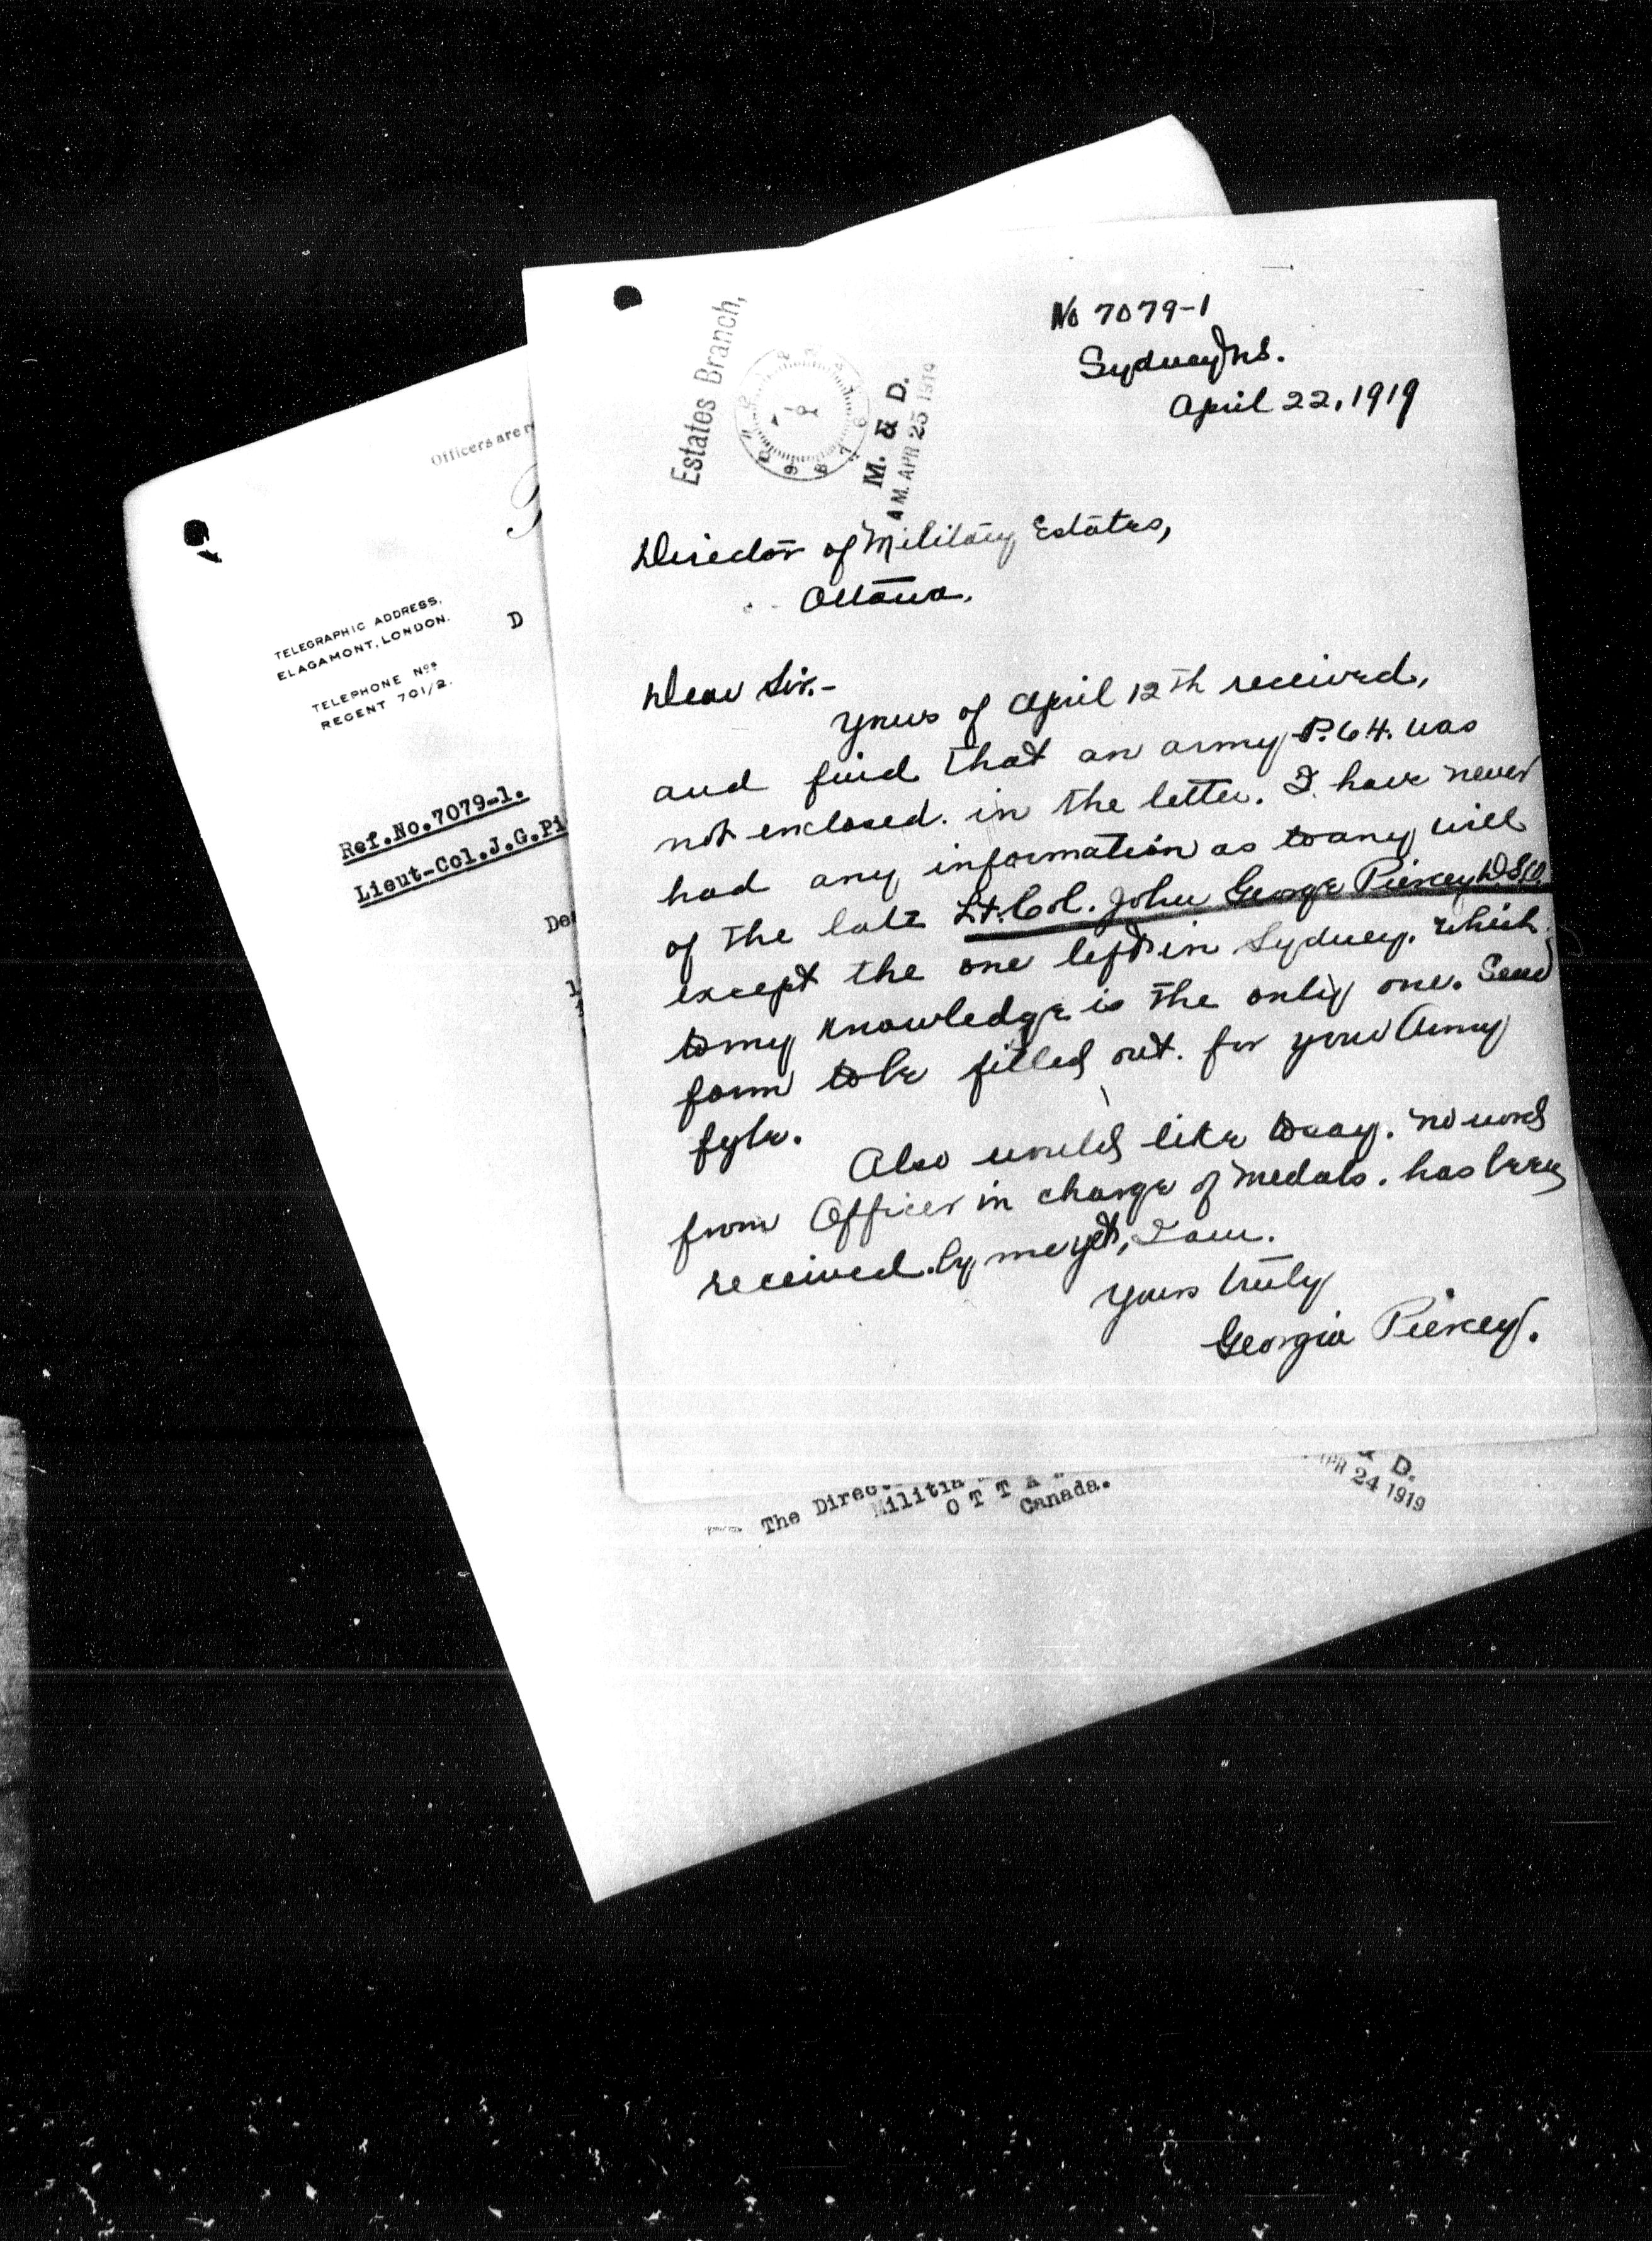 Officers are
TELEGRAPHIC ADDRESS,
ELAGAMONT, LONDON.
TELEPHONE Nos
REGENT 701/2.
D
Ref.No.7079-1.
Lieut-Col.J.G.Pi
De
1
Estates Branch,
M. & D.
A M. APR 25 1919
No 7079-1
Sydney N.S.
April 22, 1919
Director of Military Estates,
Ottawa.
Dear Sir.-
Yours of April 12th received,
and find that an army P.64. was
not enclosed. in the letter. I have never
had any information as to any will
of the late Lt. Col. John George Piercey D.S.O.
except the one left in Sydney. which
to my knowledge is the only one. Send
form to be filled out. for your Army
fyle.
Also would like to say. no word
from Officer in charge of medals. has been
received. by me yet, I am.
Yours truly
Georgia Piercey.
The Direc
Militia
O T T A
Canada.
& D.
APR 24 1919